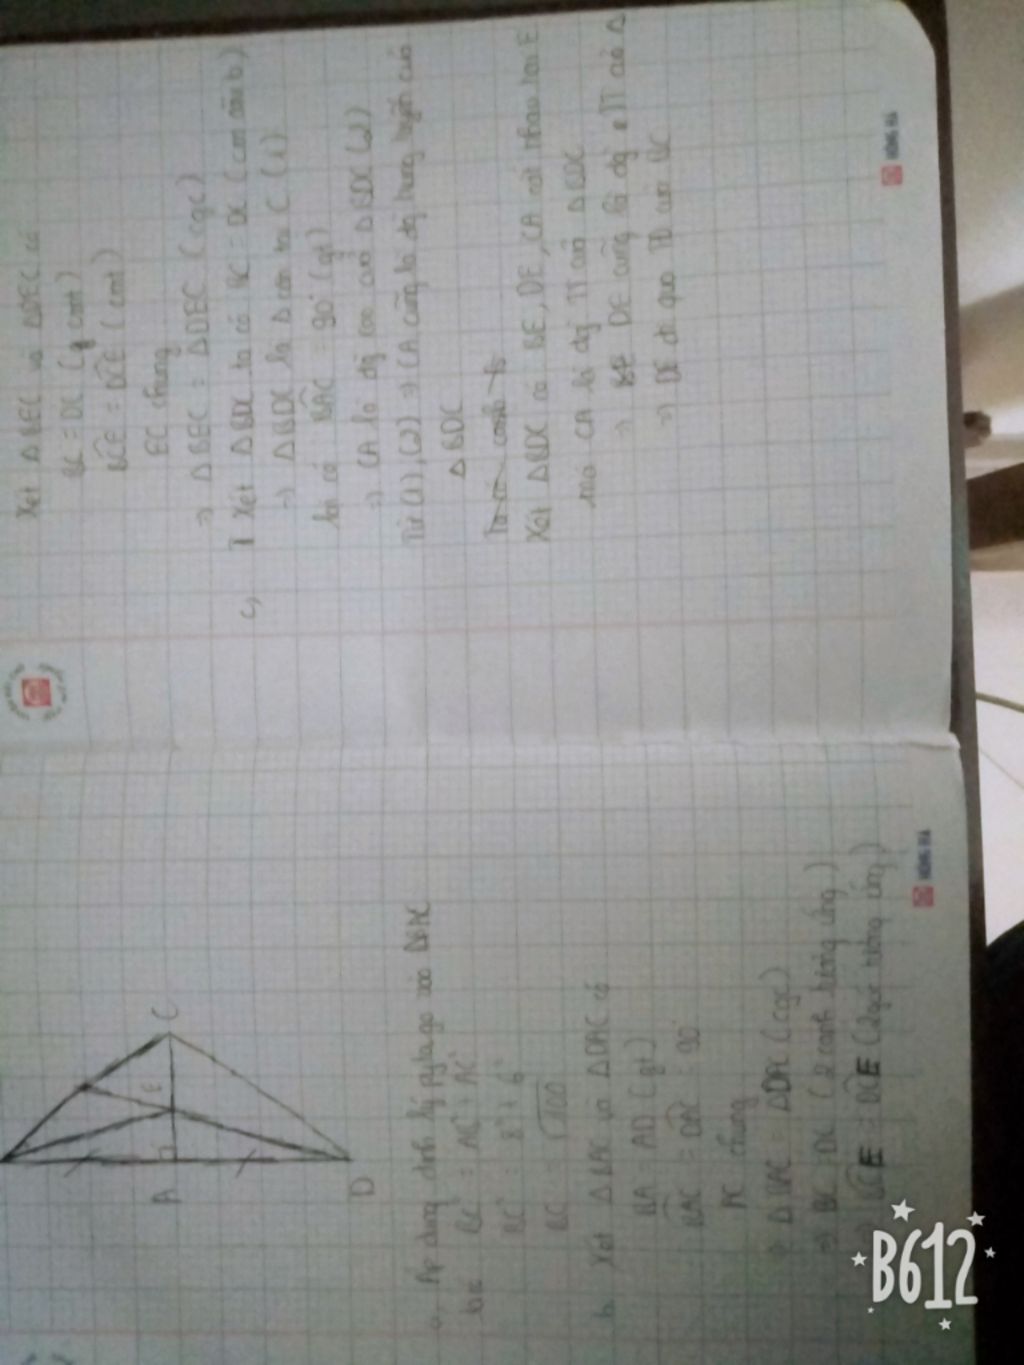 A
C
E
D
a, Áp dụng định lý pytago vào ΔBAC
BC² = AB² + AC²
BC² = 8² + 6²
BC = √100
b, Xét ΔBAC và ΔDAC có
BA = AD (gt)
BAC = DAC = 90°
AC chung
=> ΔBAC = ΔDAC (cgc)
=> BC = DC (2 cạnh tương ứng)
=> BCE = DCE (2 góc tương ứng)
Xét ΔBEC và ΔDEC có
BC = DC (cmt)
BCE = DCE (cmt)
EC chung
=> ΔBEC = ΔDEC (cgc)
c, Xét ΔBDC ta có BC = DC (cm câu b)
=> ΔBDC là Δ cân tại C (1)
lại có BAC = 90° (gt)
=> CA là đg cao của ΔBDC (2)
Từ (1), (2) => CA cũng là đg trung tuyến của
ΔBDC
Xét ΔBDC có BE, DE, CA cắt nhau tại E
mà CA là đg TT của ΔBDC
=> DE cũng là đg TT của Δ
=> DE đi qua TĐ của BC
HONG HA
HONG HA
B612